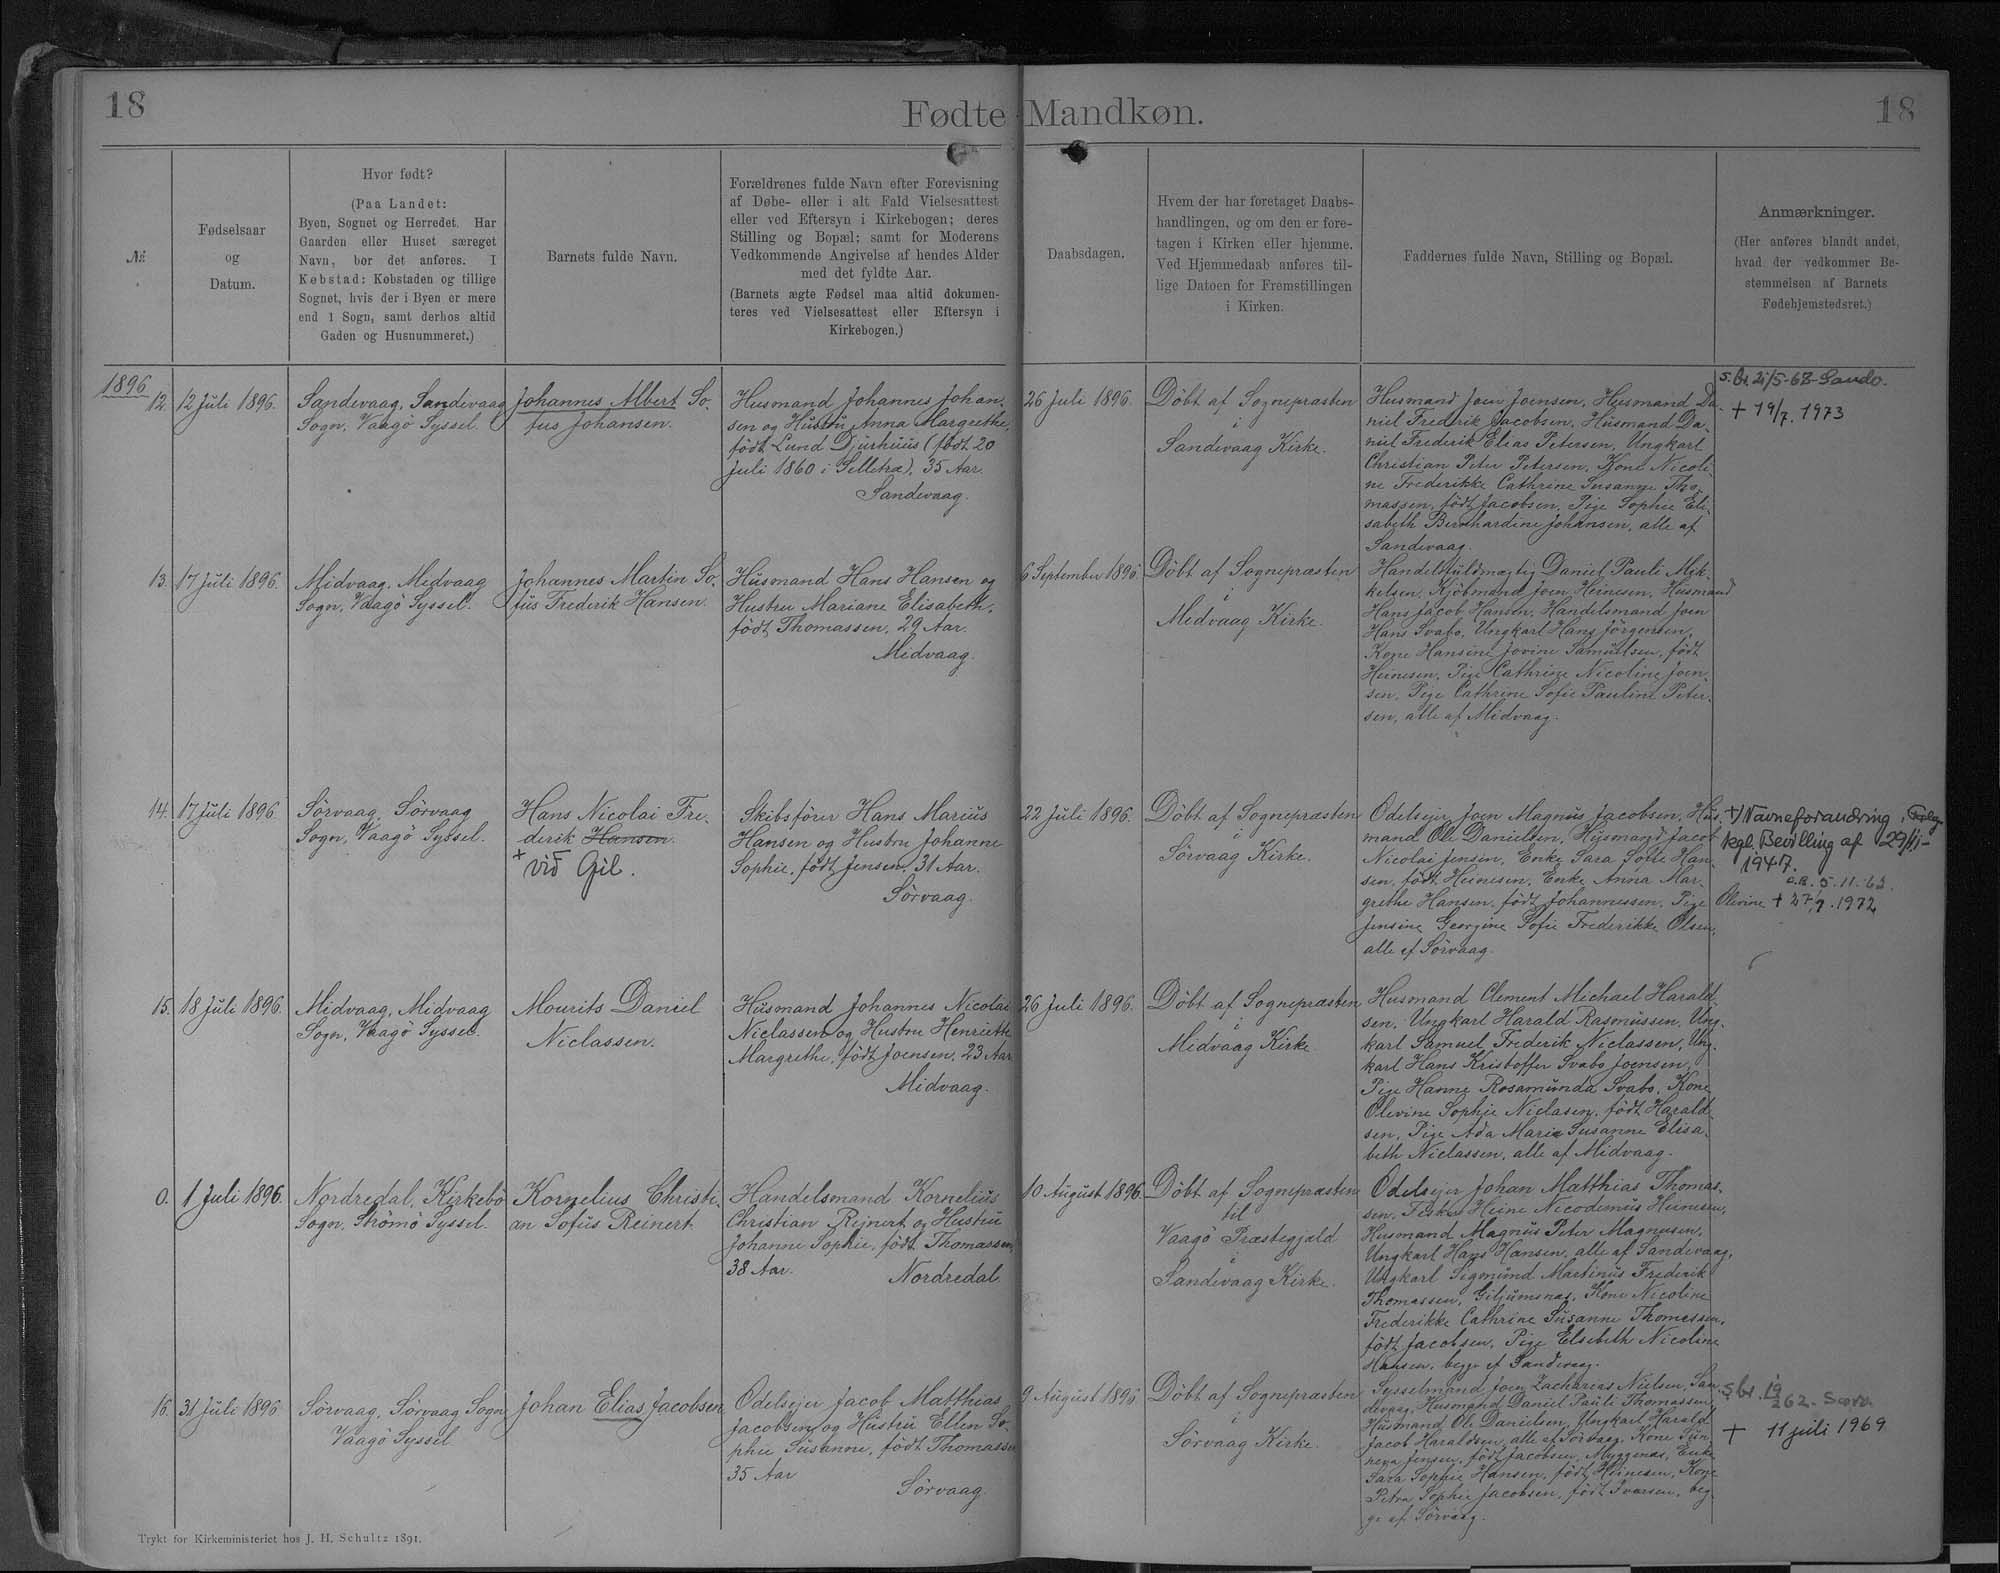 18
Fødte Mandkøn.
18
№
Fødselsaar
og
Datum.
Hvor født?
(Paa Landet:
Byen, Sognet og Herredet. Har
Gaarden eller Huset særeget
Navn, bør det anføres. I
Købstad: Købstaden og tillige
Sognet, hvis der i Byen er mere
end 1 Sogn, samt derhos altid
Gaden og Husnummeret.)
Barnets fulde Navn.
Forældrenes fulde Navn efter Forevisning
af Døbe- eller i alt Fald Vielsesattest
eller ved Eftersyn i Kirkebogen; deres
Stilling og Bopæl; samt for Moderens
Vedkommende Angivelse af hendes Alder
med det fyldte Aar.
(Barnets ægte Fødsel maa altid dokumen-
teres ved Vielsesattest eller Eftersyn i
Kirkebogen.)
Daabsdagen.
Hvem der har foretaget Daabs-
handlingen, og om den er fore-
tagen i Kirken eller hjemme.
Ved Hjemmedaab anføres til-
lige Datoen for Fremstillingen
i Kirken.
Faddernes fulde Navn, Stilling og Bopæl.
Anmærkninger.
(Her anføres blandt andet,
hvad der vedkommer Be-
stemmelsen af Barnets
Fødehjemstedsret.)
1896
12.
12 Juli 1896.
Sandevaag, Sandevaag
Sogn, Vaagö Syssel.
Johannes Albert So-
fus Johansen.
Husmand Johannes Johan-
sen og Hustru Anna Margrethe,
født Lund Djurhuus (født 20
Juli 1860 i Selletræ), 35 Aar.
Sandevaag.
26 Juli 1896.
Döbt af Sognepræsten
i
Sandevaag Kirke.
Husmand Joen Joensen, Husmand Da-
niel Frederik Jacobsen, Husmand Da-
niel Frederik Elias Petersen, Ungkarl
Christian Peter Petersen, Kone Nicoli-
ne Frederikke Cathrine Susanne Tho-
massen, født Jacobsen, Pige Sophie Eli-
sabeth Bernhardine Johansen, alle af
Sandevaag.
s. br. 21/5-68- Sandv.
+ 19/7. 1973
13.
17 Juli 1896.
Midvaag, Midvaag
Sogn, Vaagö Syssel.
Johannes Martin So-
fus Frederik Hansen.
Husmand Hans Hansen og
Hustru Mariane Elisabeth,
født Thomassen, 29 Aar.
Midvaag.
6 September 1896.
Döbt af Sognepræsten
i
Midvaag Kirke.
Handelsfuldmægtig Daniel Pauli Mik-
kelsen, Kjöbmand Joen Heinesen, Husmand
Hans Jacob Hansen, Handelsmand Joen
Hans Svabo, Ungkarl Hans Jörgensen,
Kone Hansine Jovine Samuelsen, født
Heinesen, Pige Cathrine Nicoline Joen-
sen, Pige Cathrine Sofie Pauline Peter-
sen, alle af Midvaag.
14.
17 Juli 1896.
Sörvaag, Sörvaag
Sogn, Vaagö Syssel.
Hans Nicolai Fre-
derik Hansen.
+ við Gil.
Skibsförer Hans Marius
Hansen og Hustru Johanne
Sophie, født Jensen, 31 Aar.
Sörvaag.
22 Juli 1896.
Döbt af Sognepræsten
i
Sörvaag Kirke.
Odelsejer Joen Magnus Jacobsen, Hus-
mand Ole Danielsen, Husmand Jacob
Nicolai Jensen, Enke Sara Sofie Han-
sen, født Heinesen, Enke Anna Mar-
grethe Hansen, født Johannessen, Pige
Jensine Georgine Sofie Frederikke Olsen,
alle af Sörvaag.
+) Navneforandring, Følge
kgl. Bevilling af 29/11-
1947.
5.11.63.
Olevine + 27/7.1972
15.
18 Juli 1896.
Midvaag, Midvaag
Sogn, Vaagö Syssel.
Mourits Daniel
Niclassen.
Husmand Johannes Nicolai
Niclassen og Hustru Henriette
Margrethe, født Joensen, 23 Aar
Midvaag.
26 Juli 1896.
Döbt af Sognepræsten
i
Midvaag Kirke
Husmand Clement Michael Harald-
sen, Ungkarl Harald Rasmussen, Ung-
karl Samuel Frederik Niclassen, Ung-
karl Hans Kristoffer Svabo Joensen,
Pige Hanne Rosamunda Svabo, Kone
Olevine Sophie Niclasen, født Harald-
sen, Pige Ada Marie Susanne Elisa-
beth Niclassen, alle af Midvaag.
0.
1 Juli 1896.
Nordredal, Kirkebö
Sogn, Strömö Syssel.
Kornelius Christi-
an Sofus Reinert
Handelsmand Kornelius
Christian Rejnert og Hustru
Johanne Sophie, født Thomassen,
38 Aar.
Nordredal.
10 August 1896.
Döbt af Sognepræsten
til
Vaagö Præstegjæld
i
Sandevaag Kirke.
Odelsejer Johan Matthias Thomas-
sen, Fisker Heine Nicodemus Heinesen,
Husmand Magnus Peter Magnusen,
Ungkarl Hans Hansen, alle af Sandevaag,
Ungkarl Sigmund Martinus Frederik
Thomassen, Giljumsnæs, Kone Nicoline
Frederikke Cathrine Susanne Thomassen,
født Jacobsen, Pige Elsebeth Nicoline
Hansen, begge af Sandevaag.
16.
31 Juli 1896
Sörvaag, Sörvaag Sogn
Vaagö Syssel
Johan Elias Jacobsen
Odelsejer Jacob Matthias
Jacobsen og Hustru Ellen So-
phie Susanne, født Thomassen
35 Aar
Sörvaag.
9 August 1896.
Döbt af Sognepræsten
i
Sörvaag Kirke.
Sysselmand Joen Zacharias Nielsen, San-
devaag, Husmand Daniel Pauli Thomassen,
Husmand Ole Danielsen, Ungkarl Harald
Jacob Haraldsen, alle af Sörvaag, Kone Sün-
neva Jensen, født Jacobsen, Myggenæs, Enke
Sara Sophie Hansen, født Heinesen, Kone
Petra Sophie Jacobsen, født Ivarsen, beg-
ge af Sörvaag.
+ 11 juli 1969
Trykt for Kirkeministeriet hos J. H. Schultz 1891.